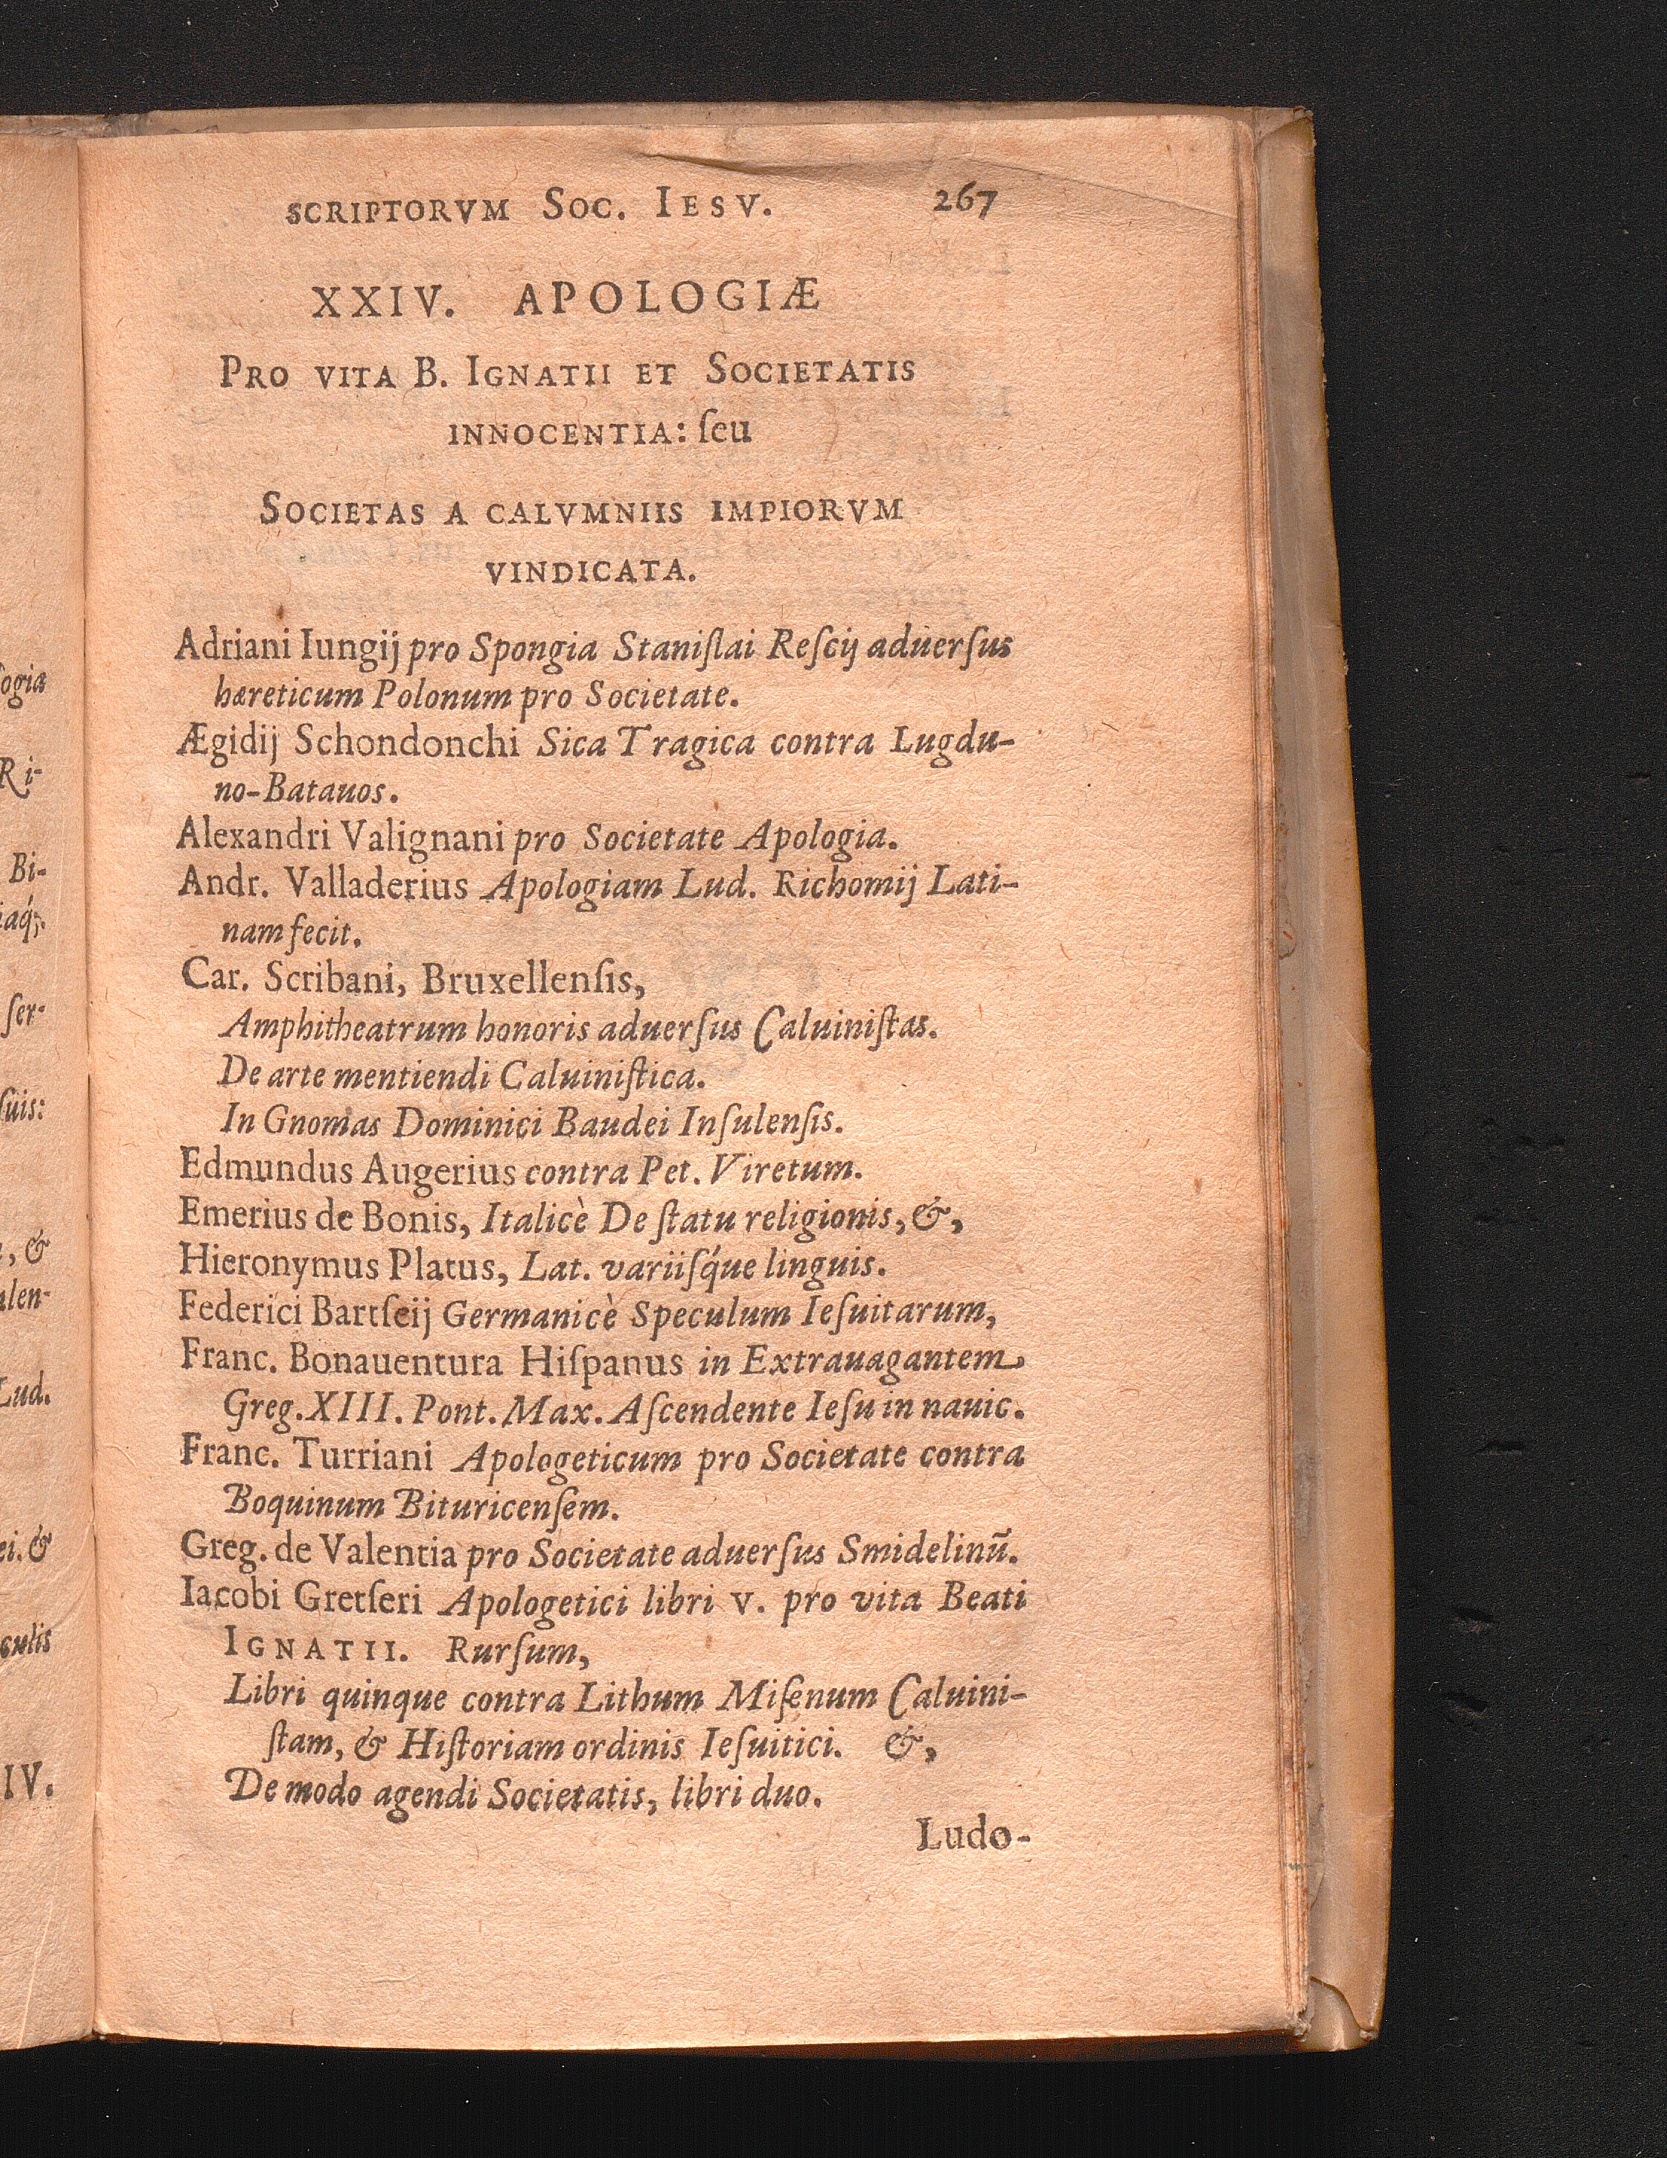 SCRIPTORVM SOC. IESV. 267
XXIV. APOLOGIÆ
PRO VITA B. IGNATII ET SOCIETATIS
INNOCENTIA: ſeu
SOCIETAS A CALVMNIIS IMPIORVM
VINDICATA.
Adriani Iungij pro Spongia Staniſlai Reſcij aduerſus
hæreticum Polonum pro Societate.
Ægidij Schondonchi Sica Tragica contra Lugdu-
no-Batauos.
Alexandri Valignani pro Societate Apologia.
Andr. Valladerius Apologiam Lud. Richomij Lati-
nam fecit.
Car. Scribani, Bruxellenſis,
Amphitheatrum honoris aduerſus Caluiniſtas.
De arte mentiendi Caluiniſtica.
In Gnomas Dominici Baudei Inſulenſis.
Edmundus Augerius contra Pet. Viretum.
Emerius de Bonis, Italicè De ſtatu religionis, &,
Hieronymus Platus, Lat. variiſq́ue linguis.
Federici Bartſeij Germanicè Speculum Ieſuitarum,
Franc. Bonauentura Hiſpanus in Extrauagantem
Greg. XIII. Pont. Max. Aſcendente Ieſu in nauic.
Franc. Turriani Apologeticum pro Societate contra
Boquinum Bituricenſem.
Greg. de Valentia pro Societate aduerſus Smidelinū.
Iacobi Gretſeri Apologetici libri V. pro vita Beati
IGNATII. Rurſum,
Libri quinque contra Lithum Miſenum Caluini-
ſtam, & Hiſtoriam ordinis Ieſuitici. &,
De modo agendi Societatis, libri duo.
Ludo-